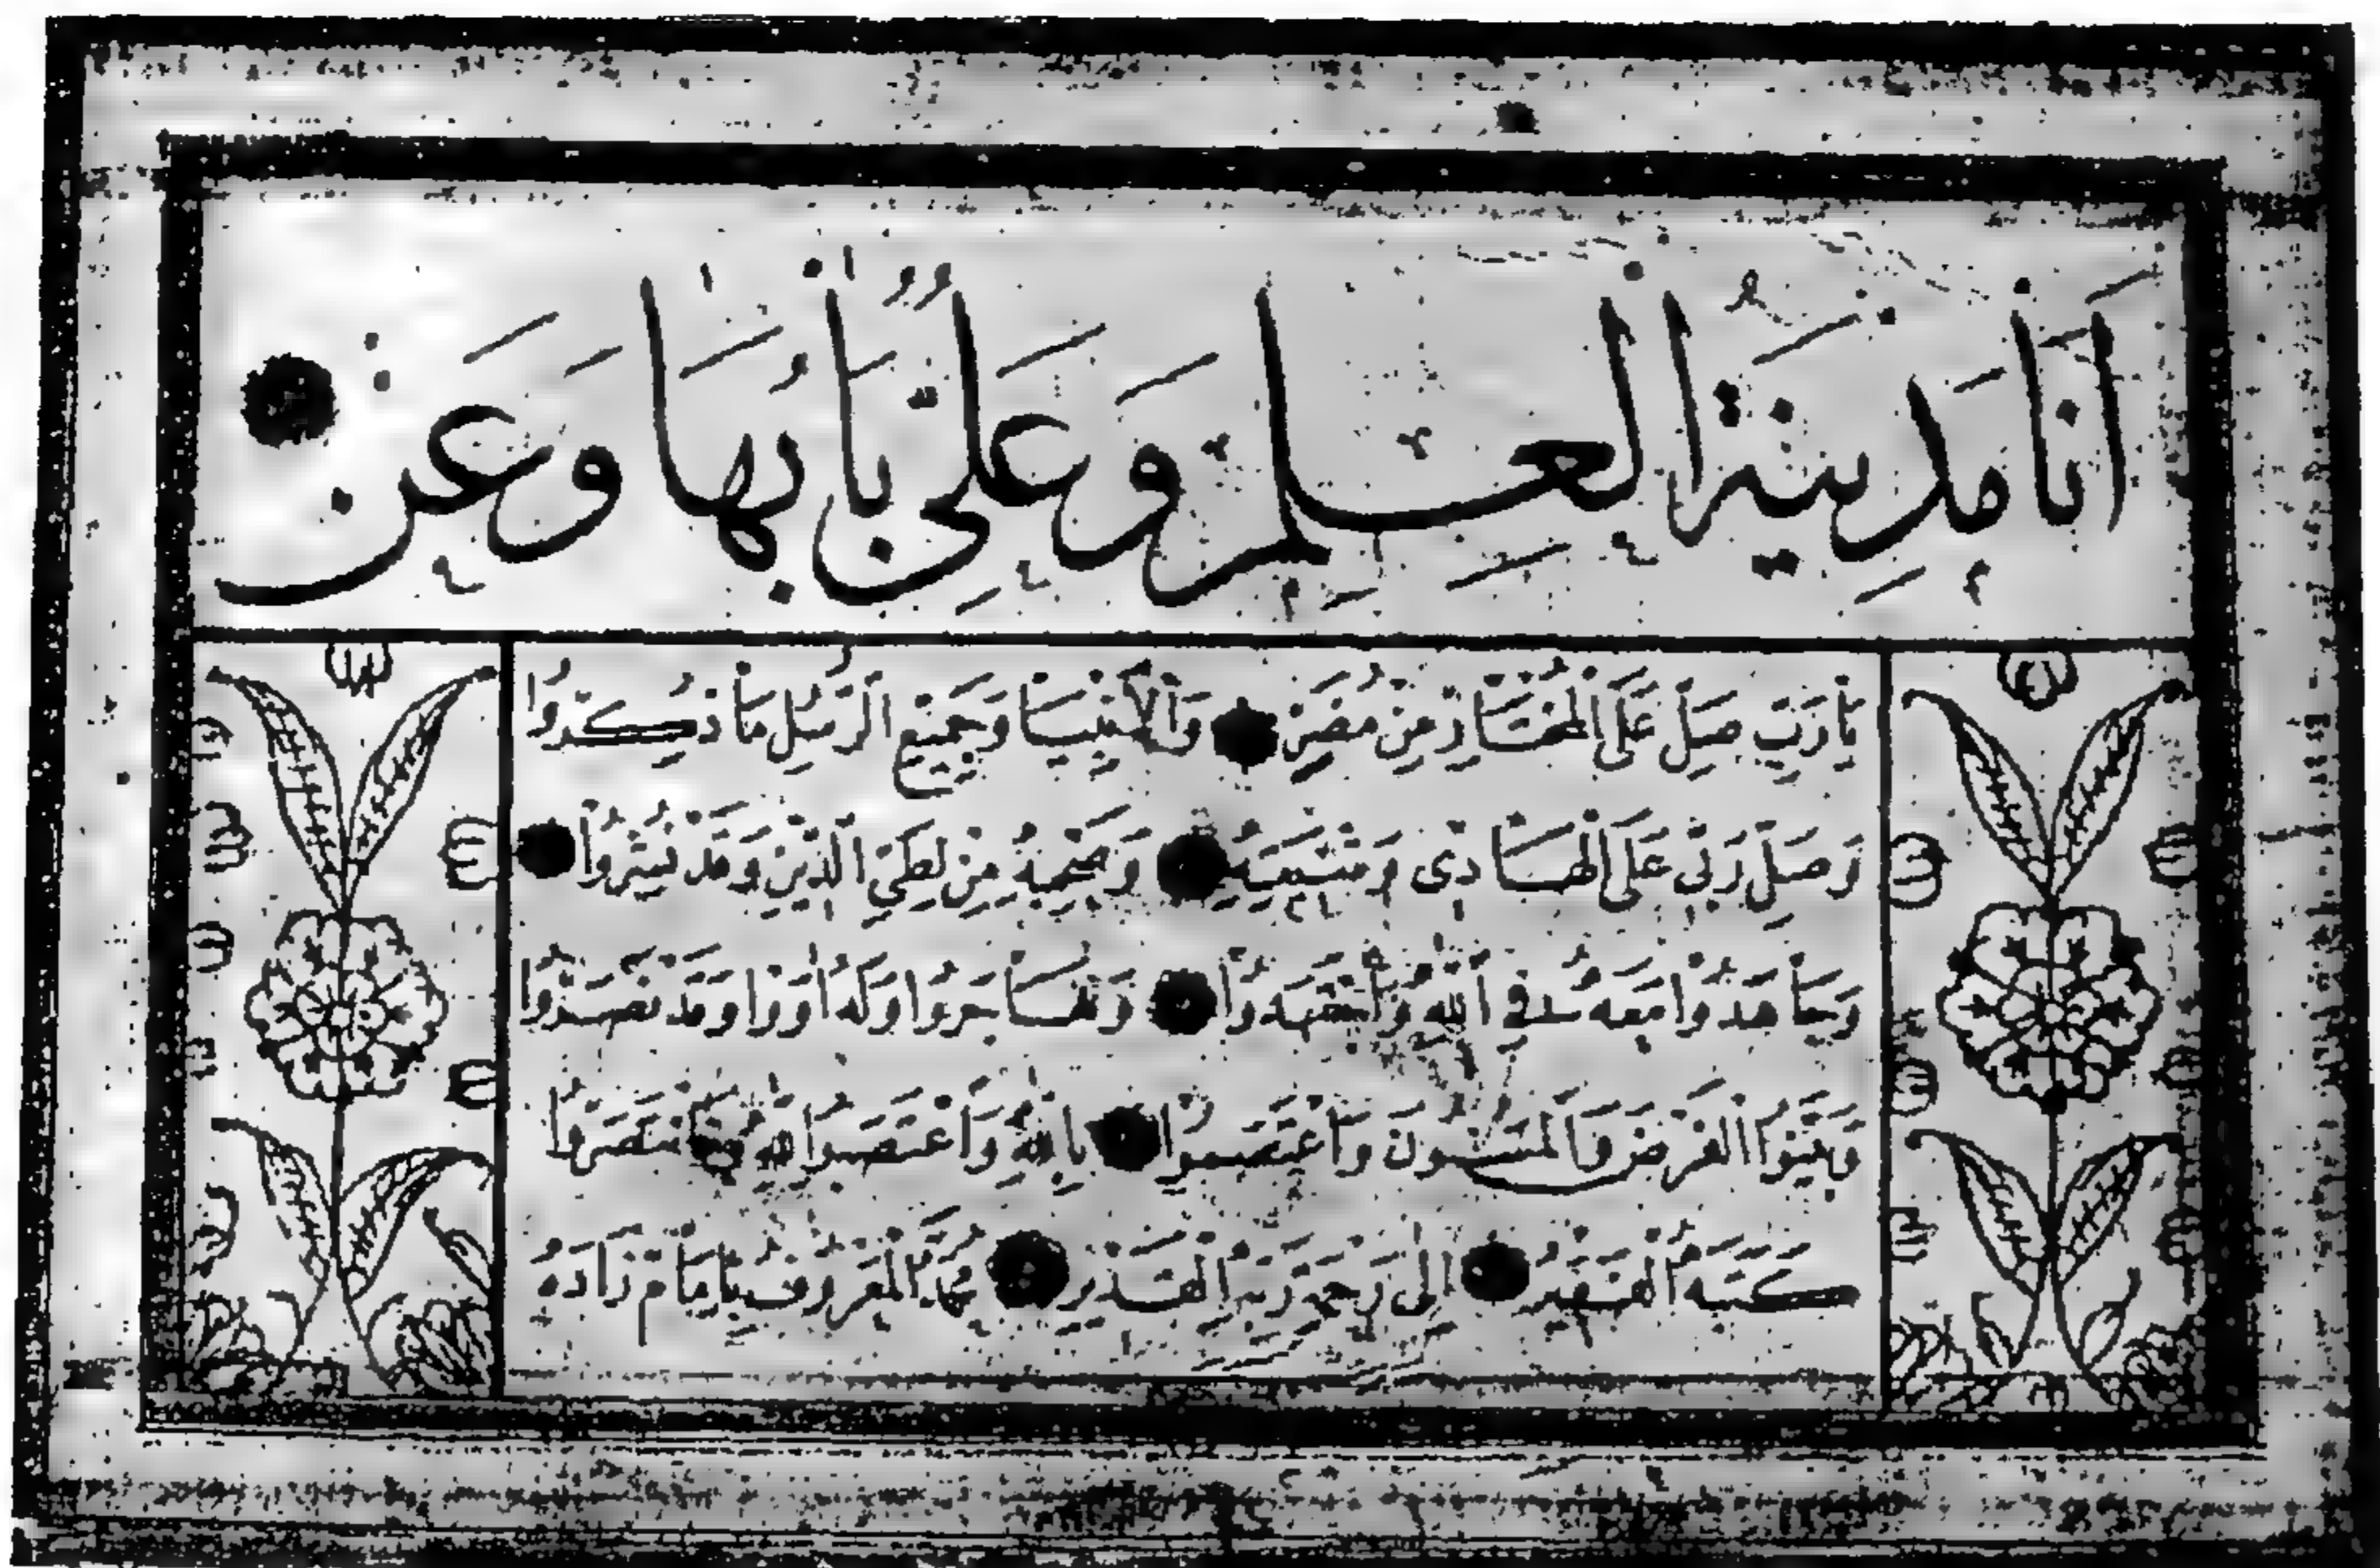 اَنَا مَدِينَةُ الْعِلْمِ وَعَلِيٌّ بَابُهَا وَعَنْ
يَا رَبِّ صَلِّ عَلَى الْمُخْتَارِ مِنْ مُضَرٍ وَالْأَنْبِيَا وَجَمِيعِ الرُّسْلِ مَا ذُكِرُوا
وَصَلِّ رَبِّي عَلَى الْهَادِي وَشِيعَتِهِ وَصَحْبِهِ مَنْ لِطَيِّ الدِّينِ وَقَدْ نُشِرُوا
وَجَاهَدُوا مَعَهُ فِي اللهِ وَاجْتَهَدُوا وَهَاجَرُوا وَلَهُ آوَوْا وَقَدْ نَصَرُوا
وَبَيَّنُوا الْفَرْضَ وَالْمَسْنُونَ وَاعْتَصَبُوا بِاللهِ وَاعْتَصَمُوا لِلّٰهِ وَانْتَصَرُوا
كَتَبَهُ الْفَقِيرُ اِلَى رَحْمَةِ رَبِّهِ الْقَدِيرِ مُحَمَّدُ الْمَعْرُوفُ بِاِمَامْ زَادَهْ